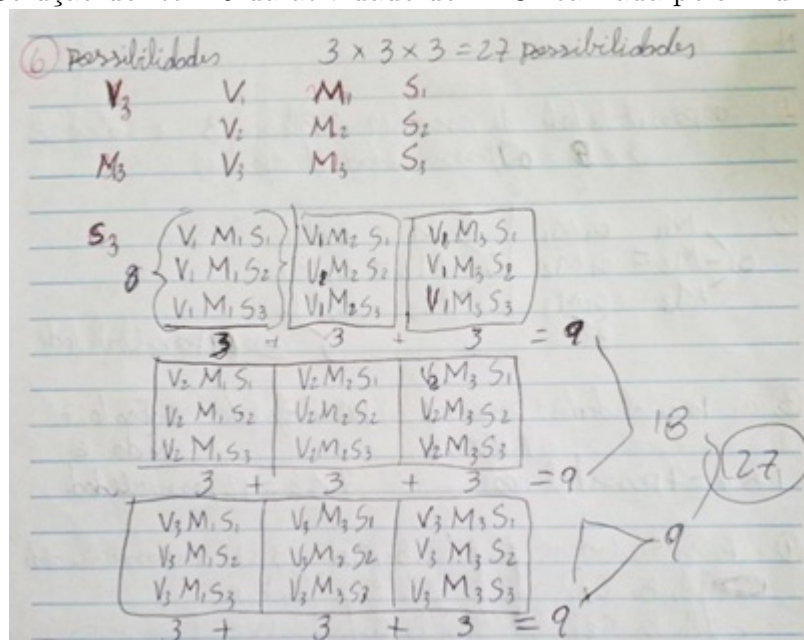 6 possibilidades 3 x 3 x 3 = 27 possibilidades
V3 V1 M1 S1
V2 M2 S2
M3 V3 M3 S3
S3 V1 M1 S1 V1 M2 S1 V1 M3 S1
8 V1 M1 S2 V1 M2 S2 V1 M3 S2
V1 M1 S3 V1 M2 S3 V1 M3 S3
3 + 3 + 3 = 9
V2 M1 S1 V2 M2 S1 V2 M3 S1
V2 M1 S2 V2 M2 S2 V2 M3 S2
V2 M1 S3 V2 M2 S3 V2 M3 S3
18
27
3 + 3 + 3 = 9
V3 M1 S1 V3 M3 S1 V3 M3 S1
V3 M1 S2 V3 M2 S2 V3 M3 S2
9
V3 M1 S3 V3 M3 S3 V3 M3 S3
3 + 3 + 3 = 9